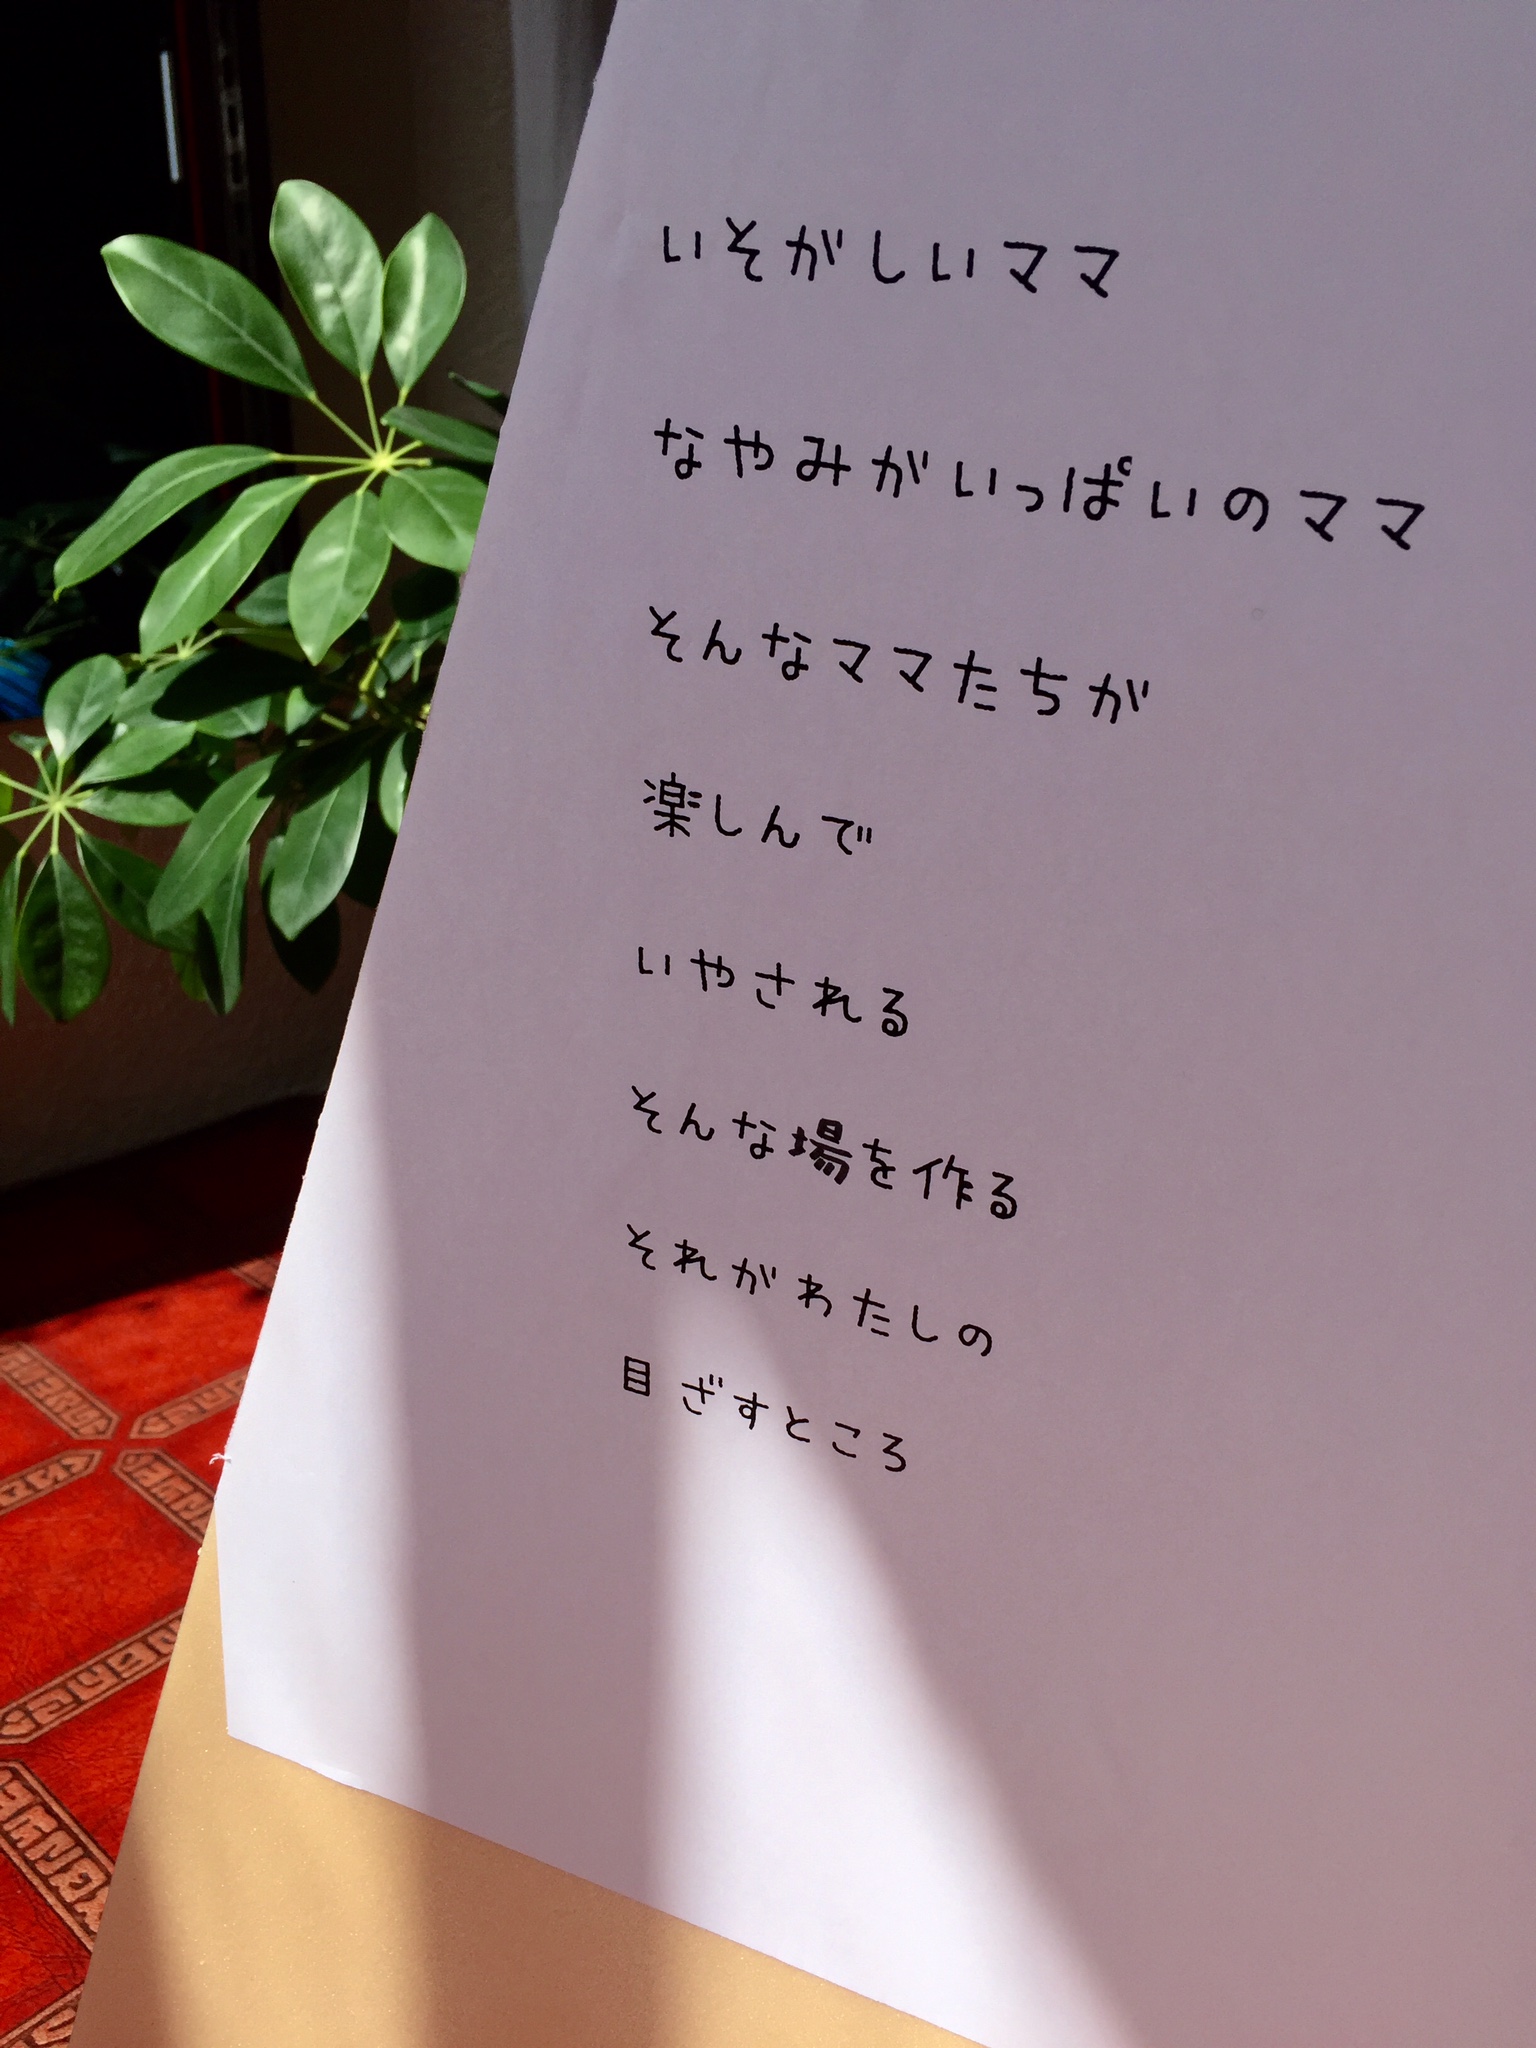 いそがしいママ
なやみがいっぱいのママ
そんなママたちが
楽しんで
いやされる
そんな場を作る
それがわたしの
目ざすところ